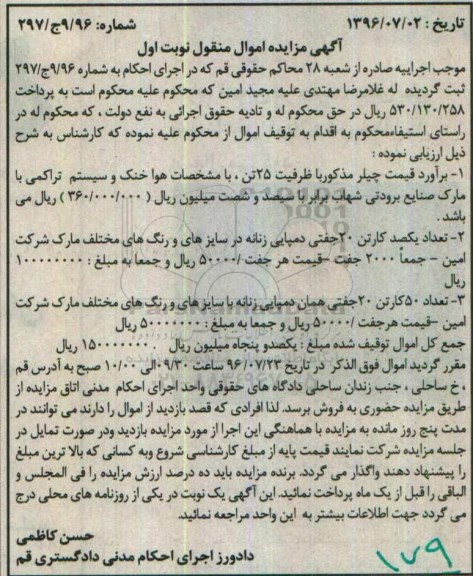 تاریخ : ۱۳۹۶/۰۷/۰۲ شماره: ۹/۹۶ج/۲۹۷
آگهی مزایده اموال منقول نوبت اول
موجب اجراییه صادره از شعبه ۲۸ محاکم حقوقی قم که در اجرای احکام به شماره ۹/۹۶ج/۲۹۷
ثبت گردیده له غلامرضا مهتدی علیه مجید امین که محکوم علیه محکوم است به پرداخت
۵۳۰/۱۳۰/۲۵۸ ریال در حق محکوم له و تادیه حقوق اجرائی به نفع دولت ، که محکوم له در
راستای استیفاءمحکوم به اقدام به توقیف اموال از محکوم علیه نموده که کارشناس به شرح
ذیل ارزیابی نموده :
۱- برآورد قیمت چیلر مذکوربا ظرفیت ۲۵تن ، با مشخصات هوا خنک و سیستم تراکمی با
مارک صنایع برودتی شهاب برابر با سیصد و شصت میلیون ریال ( ۳۶۰/۰۰۰/۰۰۰ ) ریال می
باشد .
۲- تعداد یکصد کارتن ۲۰جفتی دمپایی زنانه در سایز های و رنگ های مختلف مارک شرکت
امین – جمعاً ۲۰۰۰ جفت –قیمت هر جفت /۵۰۰۰۰ ریال و جمعا به مبلغ : ۱۰۰۰۰۰۰۰۰
ریال
۳- تعداد ۵۰کارتن ۲۰جفتی همان دمپایی زنانه با سایز های و رنگ های مختلف مارک شرکت
امین –قیمت هرجفت /۵۰۰۰۰ ریال و جمعا به مبلغ : ۵۰۰۰۰۰۰۰ ریال
جمع کل اموال توقیف شده مبلغ : یکصدو پنجاه میلیون ریال ۱۵۰۰۰۰۰۰۰ ریال
مقرر گردید اموال فوق الذکر در تاریخ ۹۶/۰۷/۲۳ ساعت ۰۹/۳۰ الی ۱۰/۰۰ صبح به آدرس قم
، خ ساحلی ، جنب زندان ساحلی دادگاه های حقوقی واحد اجرای احکام مدنی اتاق مزایده از
طریق مزایده حضوری به فروش برسد. لذا افرادی که قصد بازدید از اموال را دارند می توانند در
مدت پنج روز مانده به مزایده با هماهنگی این اجرا از مورد مزایده بازدید ودر صورت تمایل در
جلسه مزایده شرکت نمایند قیمت پایه از مبلغ کارشناسی شروع وبه کسانی که بالا ترین مبلغ
را پیشنهاد دهند واگذار می گردد. برنده مزایده باید ده درصد ارزش مزایده را فی المجلس و
الباقی را قبل از یک ماه پرداخت نمائید. این آگهی یک نوبت در یکی از روزنامه های محلی درج
می گردد جهت اطلاعات بیشتر به این واحد مراجعه نمائید.
حسن کاظمی
دادورز اجرای احکام مدنی دادگستری قم
۱۷۹